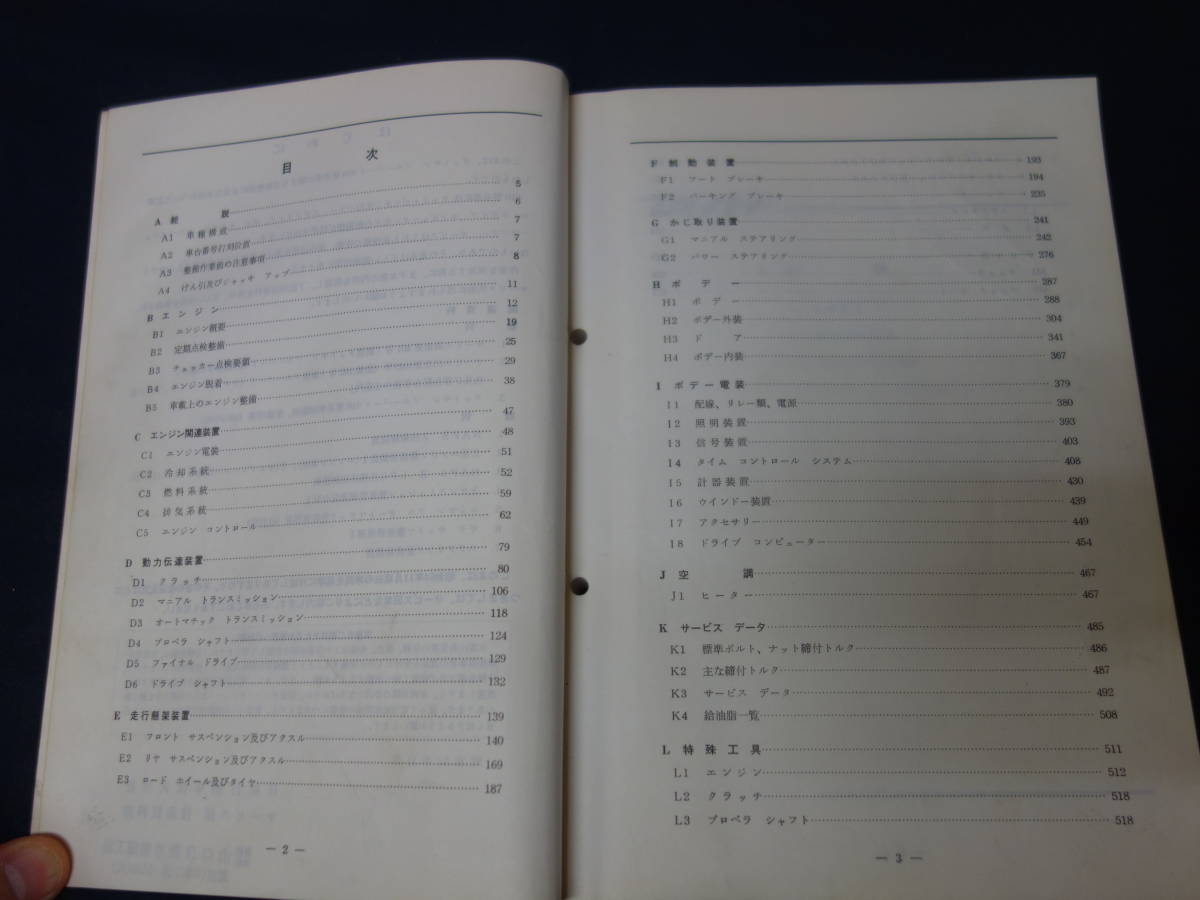 目 次
A 総 説 5
A1 車種構成 6
A2 車台番号打刻位置 7
A3 整備作業前の注意事項 7
A4 けん引及びジャッキ アップ 8
B エンジン 11
B1 エンジン概要 12
B2 定期点検整備 19
B3 チェッカー点検要領 25
B4 エンジン脱着 29
B5 車載上のエンジン整備 38
C エンジン関連装置 47
C1 エンジン電装 48
C2 冷却系統 51
C3 燃料系統 52
C4 排気系統 59
C5 エンジン コントロール 62
D 動力伝達装置 79
D1 クラッチ 80
D2 マニアル トランスミッション 106
D3 オートマチック トランスミッション 118
D4 プロペラ シャフト 124
D5 ファイナル ドライブ 129
D6 ドライブ シャフト 132
E 走行懸架装置 139
E1 フロント サスペンション及びアクスル 140
E2 リヤ サスペンション及びアクスル 169
E3 ロード ホイール及びタイヤ 187
— 2 —
F 制動装置 193
F1 フート ブレーキ 194
F2 パーキング ブレーキ 235
G かじ取り装置 241
G1 マニアル ステアリング 242
G2 パワー ステアリング 276
H ボデー 287
H1 ボデー 288
H2 ボデー外装 304
H3 ドア 341
H4 ボデー内装 367
I ボデー電装 379
I1 配線、リレー類、電源 380
I2 照明装置 393
I3 信号装置 403
I4 タイム コントロール システム 408
I5 計器装置 430
I6 ウインドー装置 439
I7 アクセサリ 449
I8 ドライブ コンピューター 454
J 空 調 467
J1 ヒーター 467
K サービス データ 485
K1 標準ボルト、ナット締付トルク 486
K2 主な締付トルク 487
K3 サービス データ 492
K4 給油脂一覧 508
L 特殊工具 511
L1 エンジン 512
L2 クラッチ 518
L3 プロペラ シャフト 518
— 3 —